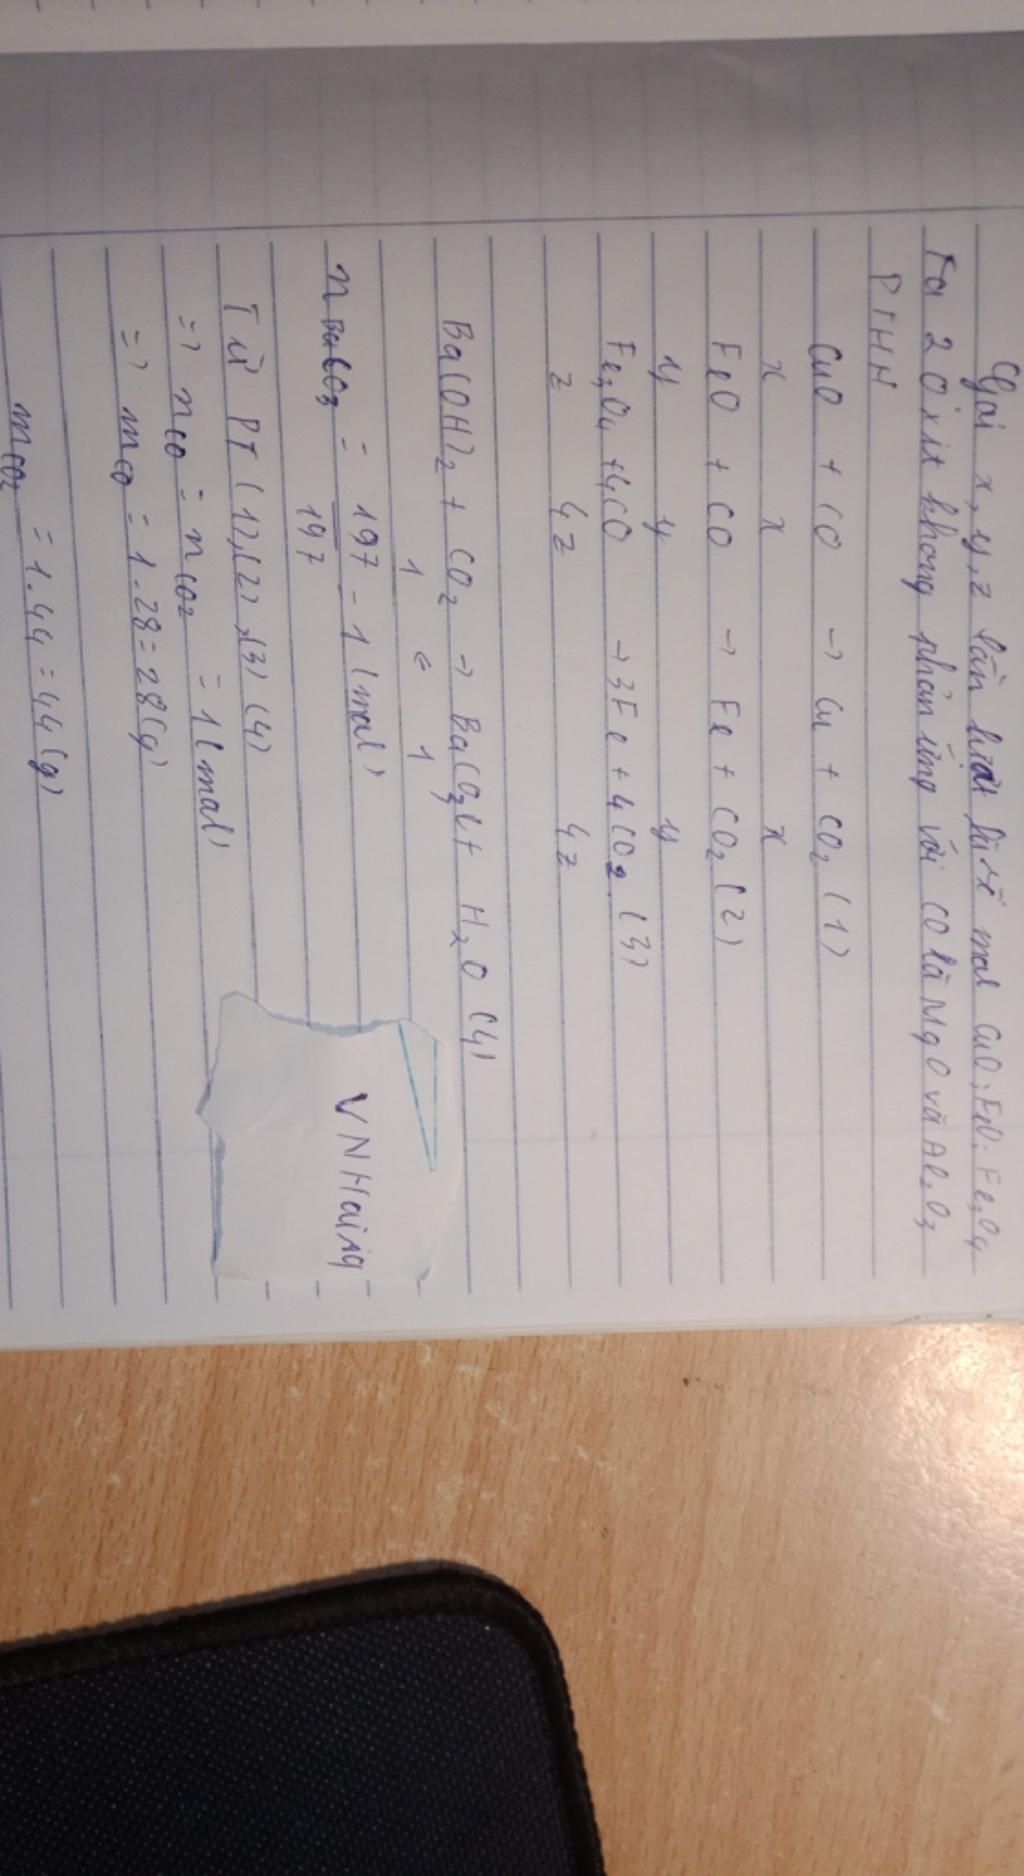 Gọi x, y, z lần lượt là số mol CuO, FeO, Fe3O4
Ta 2 Oxit không phản ứng với CO là MgO và Al2O3
PTHH
CuO + CO → Cu + CO2 (1)
x x x
FeO + CO → Fe + CO2 (2)
y y y
Fe3O4 + 4CO → 3Fe + 4CO2 (3)
z 4z 4z
Ba(OH)2 + CO2 → BaCO3↓ + H2O (4)
1 ← 1
nBaCO3 = 197/197 = 1 (mol)
Từ PT (1), (2), (3) (4)
=> nCO = nCO2 = 1 (mol)
=> mCO = 1.28 = 28 (g)
mCO2 = 1.44 = 44 (g)
VNHaiiq